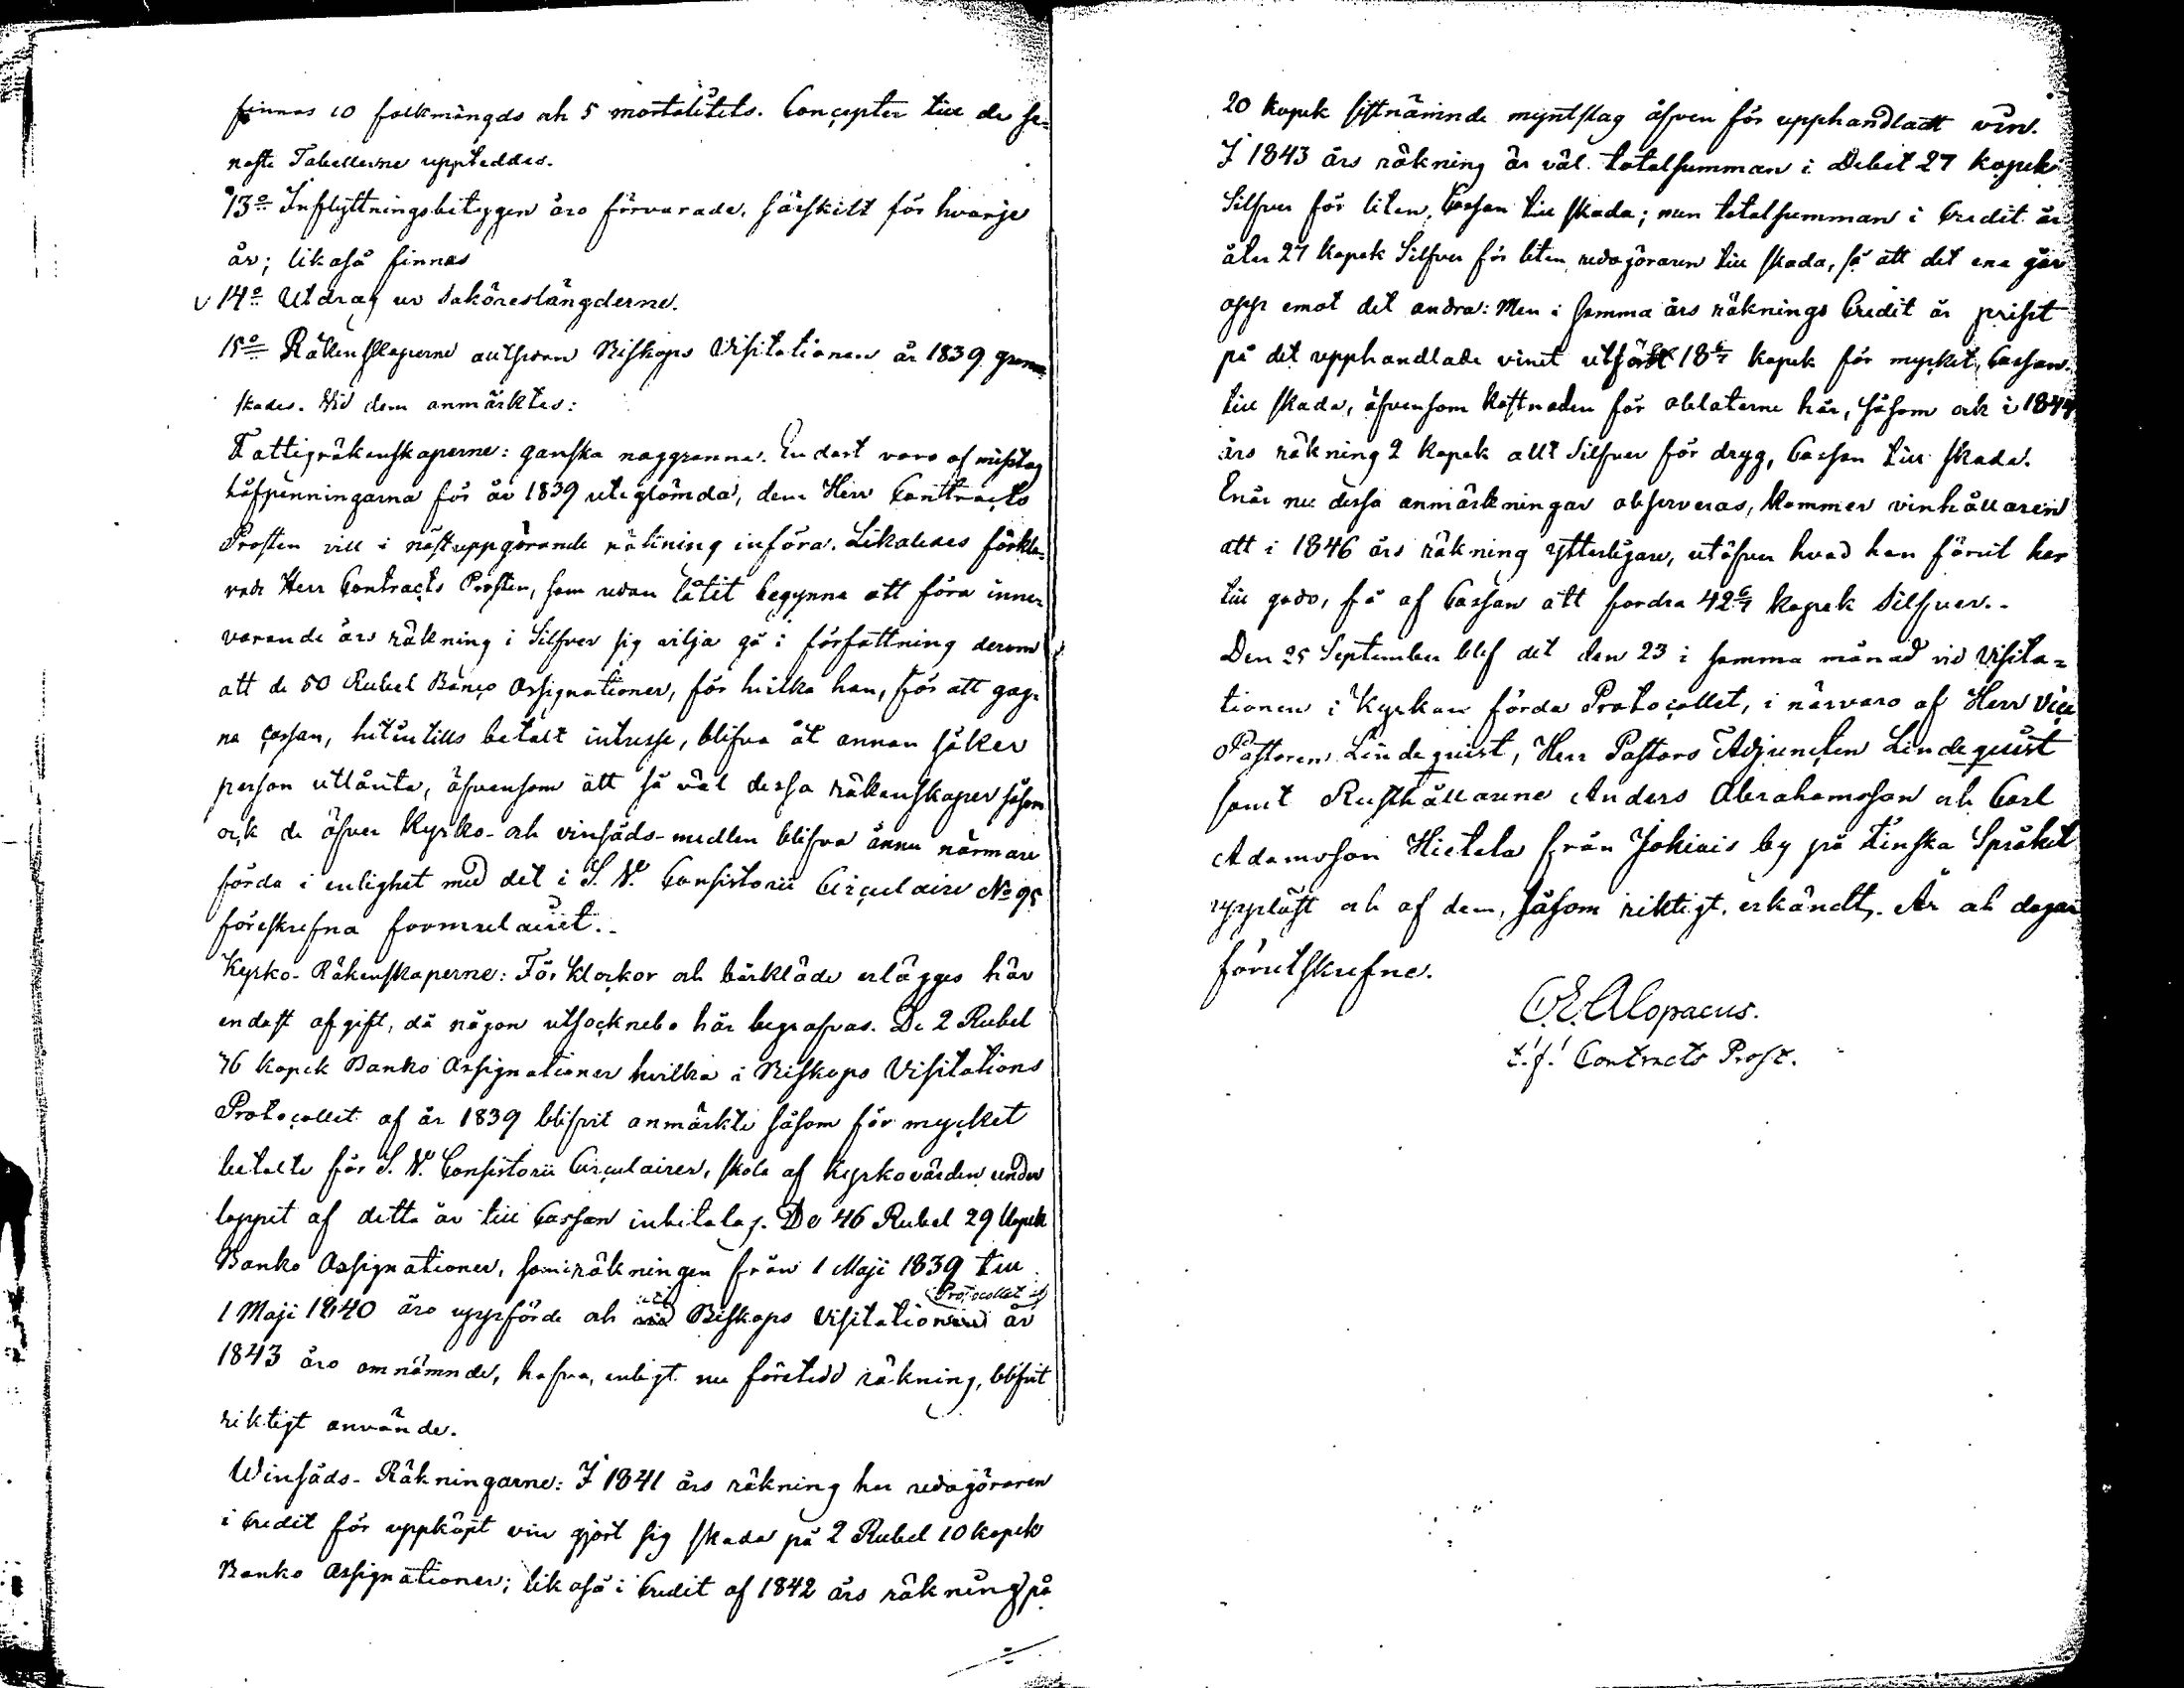 finnas 10 folkmängds och 5 mortalitets. Concepter till de se-
naste Tabellerne uppteddes.
13o Inflyttningsbetygen äro förvarade, särskilt för hvarje
år; likaså finnas
14o Utdrag ur saköreslängderne.
15o Räkenskaperne allt sedan Biskops Visitationen år 1839 gran-
skades. Vid dem anmärktes:
Fattigräkenskaperne: ganska noggranna. Endast voro af misstag
håfpenningarna för år 1839 uteglömda, dem Herr Contracts
Prosten vill i näst uppgörande räkning införa. Likaledes förkla-
rade Herr Contracts Prosten, som redan låtit begynna att föra inne-
varande års räkning i Silfver sig vilja gå i författning derom
att de 50 Rubel Banco Assignationer, för hvilka han, för att gag-
na Cassan, hitintills betalt intresse, blifva åt annan säker
person utlånta, äfvensom att så väl dessa räkenskaper såsom
ock de öfver Kyrko- och vinsäds-medlen blifva ännu närmare
förda i enlighet med det i S. V. Consistorii Circulaire No 95
föreskrefna formulairet.
Kyrko-Räkenskaperne: För klockor och bårkläde erlägges här
endast afgift, då någon utsocknebo här begrafvas. De 2 Rubel
76 Kopek Banko Assignationer hvilka i Biskops Visitations
Protocollet af år 1839 blifvit anmärkte såsom för mycket
betalte för S. V. Consistorii Circulairer, skola af Kyrkovärden under
loppet af detta år till Cassan inbetalas. De 46 Rubel 29 Kopek
Banko Assignationer, som i räkningen från 1 Maji 1839 till
1 Maji 1840 äro uppförde och uti Biskops Visitations Protocollet af år
1843 äro omnämnde, hafva, enligt nu företedd räkning, blifvit
riktigt använde.
Winsäds-Räkningarne: I 1841 års räkning har redogöraren
i Credit för uppköpt vin gjort sig skada på 2 Rubel 10 kopek
Banko Assignationer; likaså i Credit af 1842 års räkning på
20 kopek sistnämnde myntslag äfven för upphandladt vin.
I 1843 års räkning är väl totalsumman i Debet 27 kopek
Silfver för liten, Cassan till skada; men totalsumman i Credit är
åter 27 kopek Silfver för liten redogöraren till skada, så att det ena går
opp emot det andra: Men i samma års räknings Credit är priset
på det upphandlade vinet utfördt 18 6/7 kopek för mycket, Cassan
till skada, äfvensom kostnaden för oblaterne här, såsom och i 1844
års räkning 2 kopek allt Silfver för dryg, Cassan till skada.
Enär nu dessa anmärkningar observeras, kommer vinhållaren
att i 1846 års räkning ytterligare, utöfver hvad han förut har
till godo, få af Cassan att fordra 42 6/7 kopek Silfver.
Den 25 September blef det den 23 i samma månad vid Visita-
tionen i Kyrkan förda Protocollet, i närvaro af Herr Vice
Pastoren Lindequist, Herr Pastors Adjuncten Lindequist
samt Rusthållarne Anders Abrahamsson och Carl
Adamsson Hietala från Jokiais by på Finska Språket
uppläst och af dem, såsom riktigt, erkändt. År och dagar
förutskrefne.
C. E. Alopaeus.
t.f. Contracts Prost.